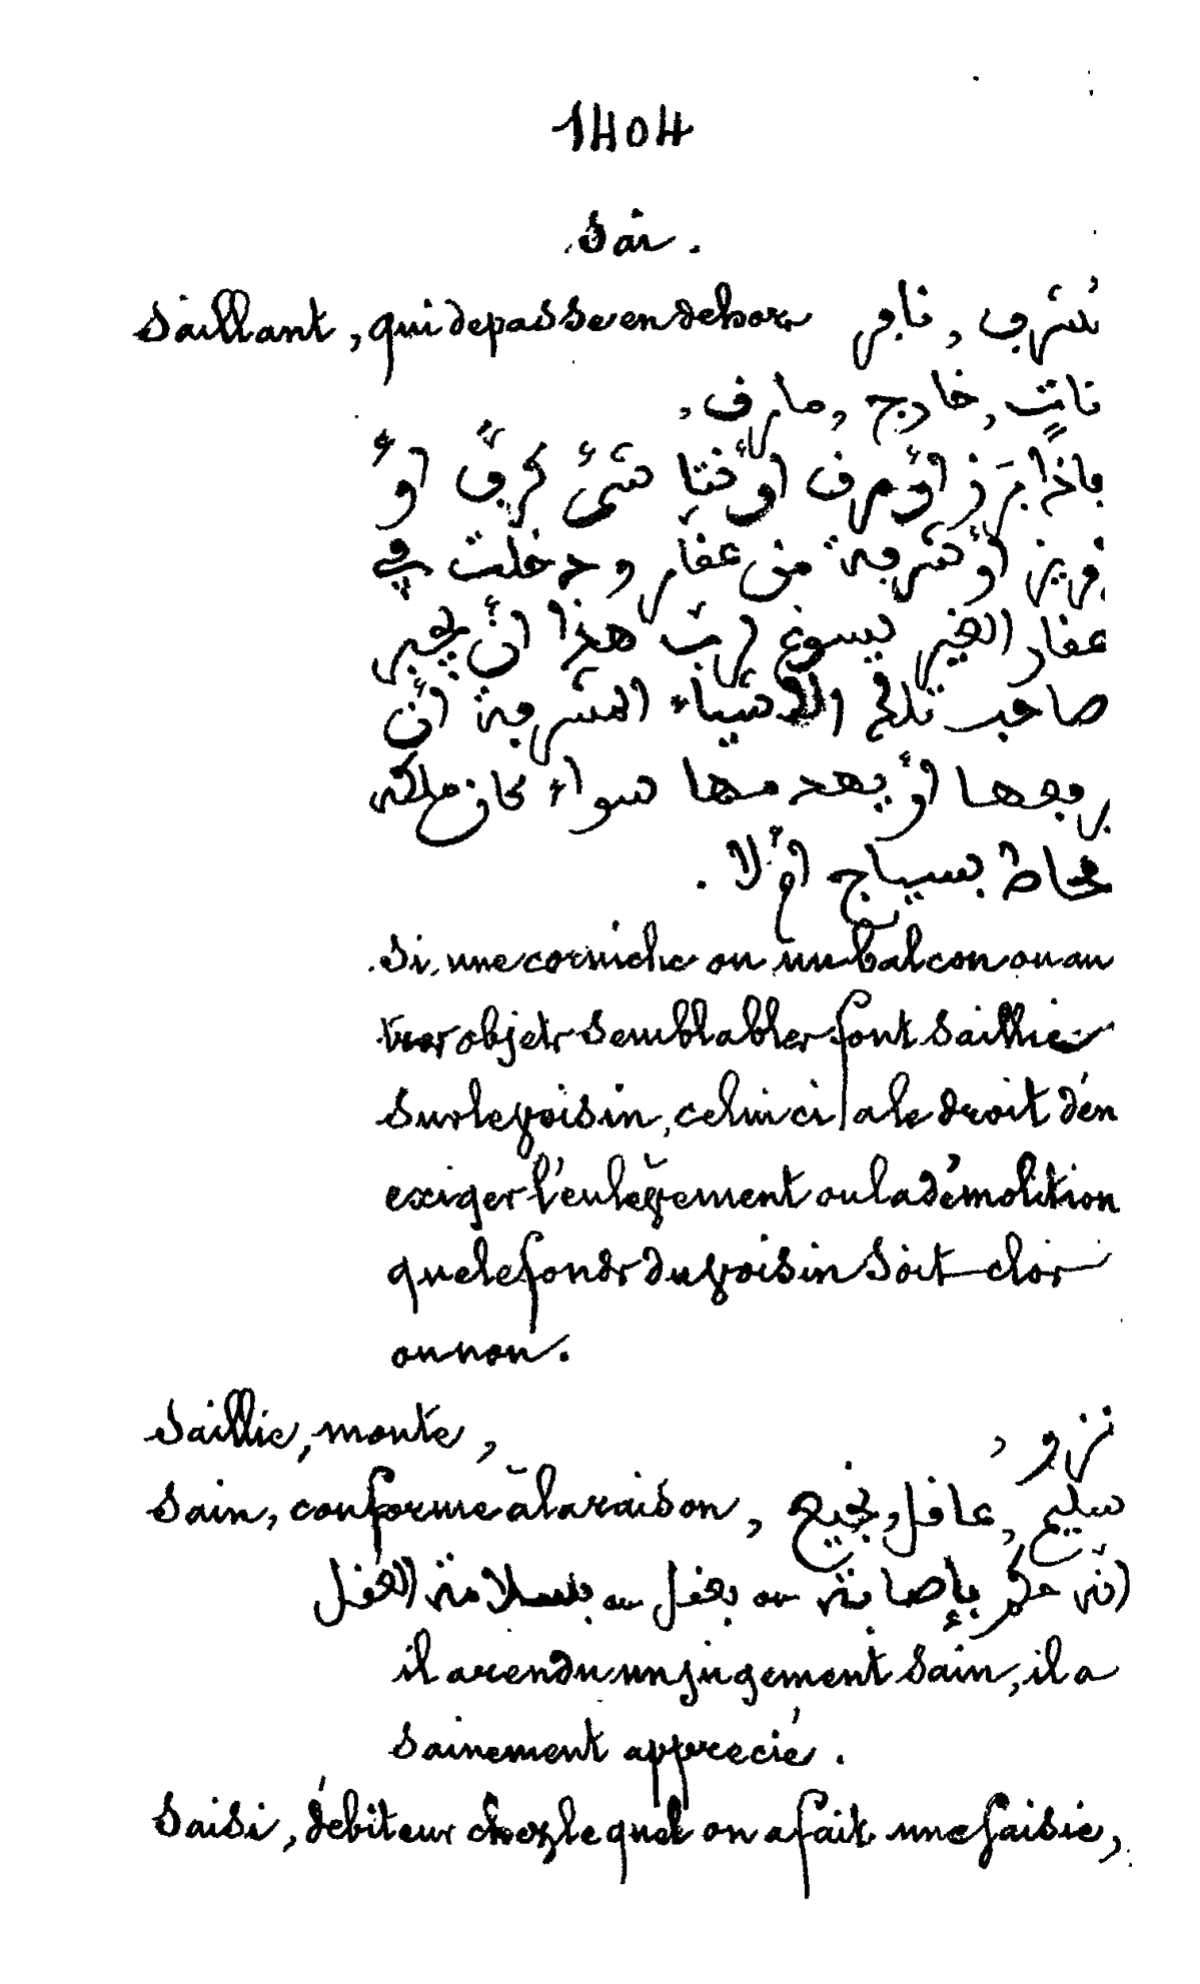 1404
Sai.
Saillant, qui depasse en dehors مُشْرِف, نافر,
ناتٍئ, خارج, مارف,
فاذا بَرَز أو مرف أو نتا شئ كرفّ أو
فريز أو شرفة من عقار ودخلت في
عقار الغير يسوغ لرب هذا أن يجبر
صاحب تلك الاشياء المشرفة أن
يرفعها أو يهدمها سواء كان ملكه
محاط بسياج أم لا.
Si, une corniche ou un balcon ou au
tres objets semblables font saillie
sur le voisin, celui ci a le droit d'en
exiger l'enlèvement ou la démolition
que le fonds du voisin soit clos
ou non.
Saillie, monte, نزو,
Sain, conforme à la raison, سليم, عاقل, نجيح
انه حكم بإصابة ou بعقل ou بسلامة العقل
il a rendu un jugement sain, il a
sainement apprecié.
Saisi, débiteur chez le quel on a fait une saisie,